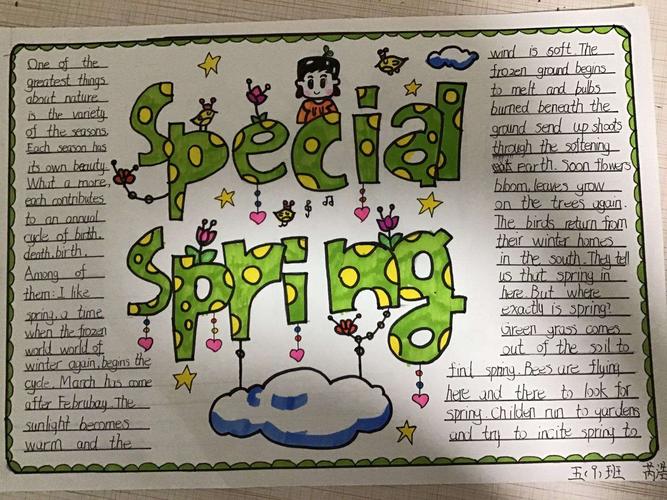 Special
Spring
One of the
greatest things
about nature
is the variety
of the seasons.
Each season has
its own beauty.
What a more,
each contributes
to an annual
cycle of birth,
death, birth.
Among of
them: I like
spring, a time
when the frozen
world world of
winter again, begins the
cycle. March has come
after Februbay. The
sunlight becomes
warm and the
wind is soft. The
frozen ground begins
to melt and bulbs
burned beneath the
ground send up shoots
through the softening
earth. Soon flowers
bboom, leaves grow
on the trees again.
The birds return from
their winter homes
in the south. They tell
us that spring in
here. But where
exactly is spring?
Green grass comes
out of the soil to
find spring. Bees are flying
here and there to look for
spring. Childen run to yardens
and try to incite spring to
五(9)班